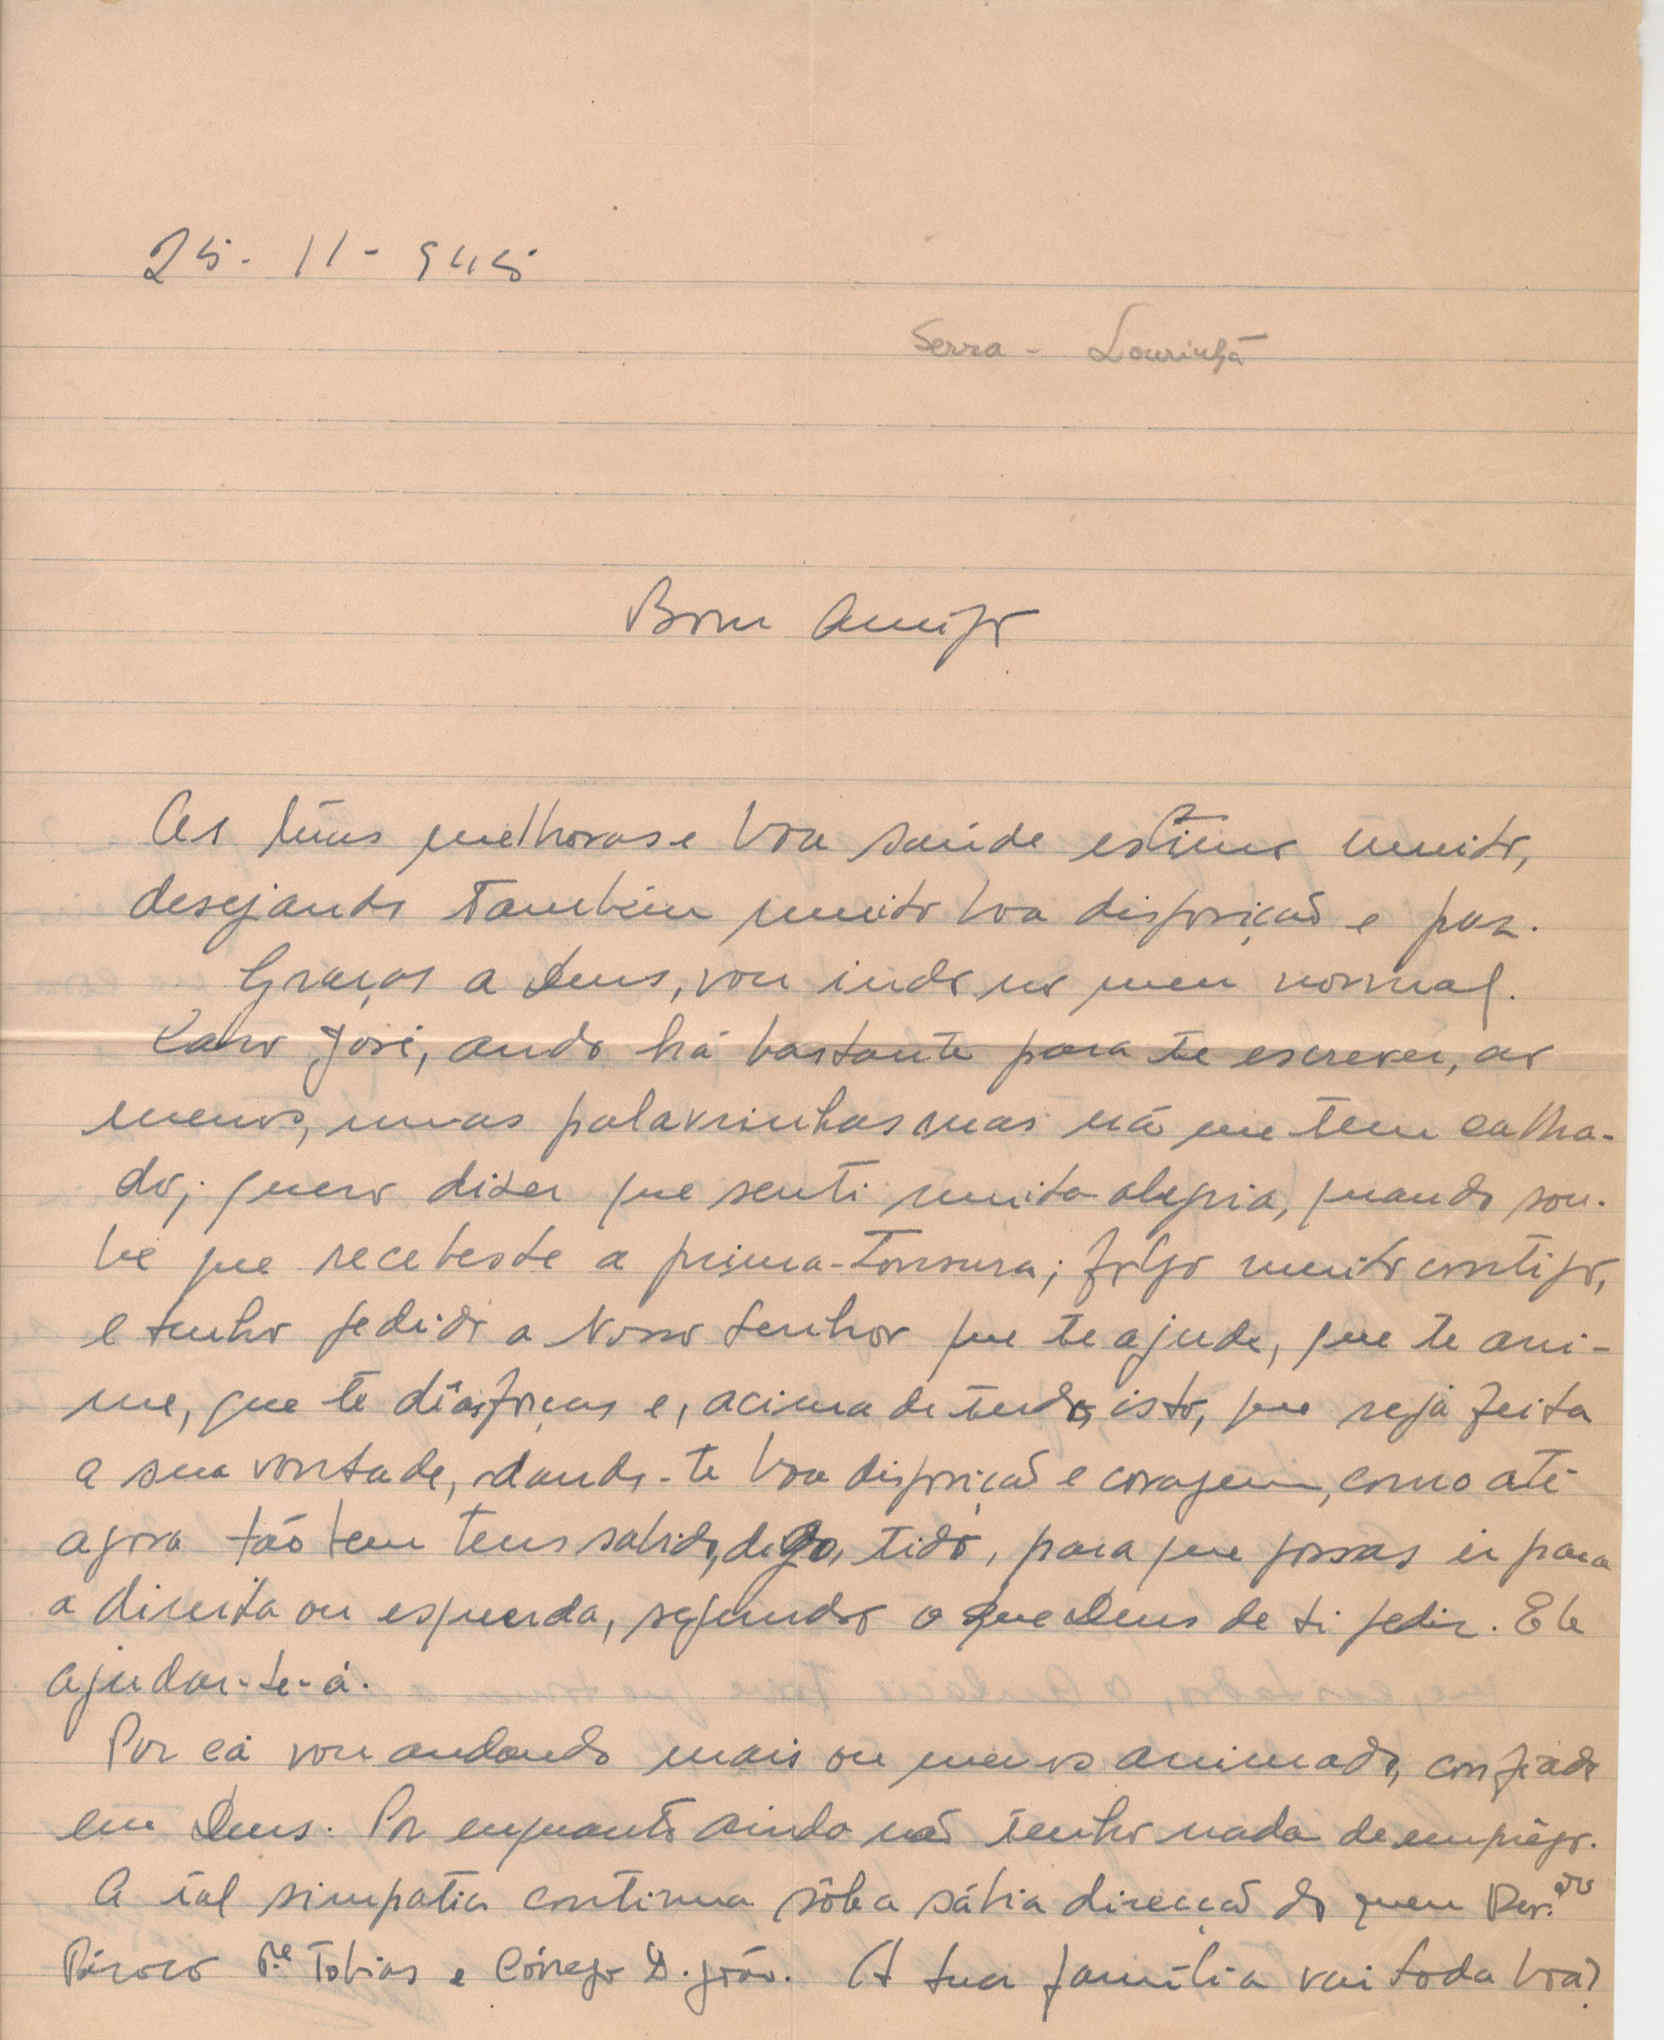 25-11-945
Serra - Lourinhã
Bom Amigo
As tuas melhoras e boa saúde estimo muito,
desejando também muito boa disposição e paz.
Graças a Deus, vou indo no meu normal.
Caro José, ando há bastante para te escrever, ao
menos, umas palavrinhas mas não me tem calha-
do; quero dizer que senti muita alegria, quando sou-
be que recebeste a prima-tonsura; folgo muito contigo,
e tenho pedido a Nosso Senhor que te ajude, que te ani-
me, que te dê as forças e, acima de tudo isto, que seja feita
a sua vontade, dando-te boa disposição e coragem, como até
agora tão bem tens sabido, digo, tido, para que possas ir para
a direita ou esquerda, segundo o que Deus de ti pedir. Ele
ajudar-te-á.
Por cá vou andando mais ou menos animado, confiado
em Deus. Por enquanto ainda não tenho nada de emprêgo.
A tal simpatia continua sob a sábia direcção do meu Rev.do
Pároco P.e Tobias e Cónego D. João. A tua família vai toda boa?